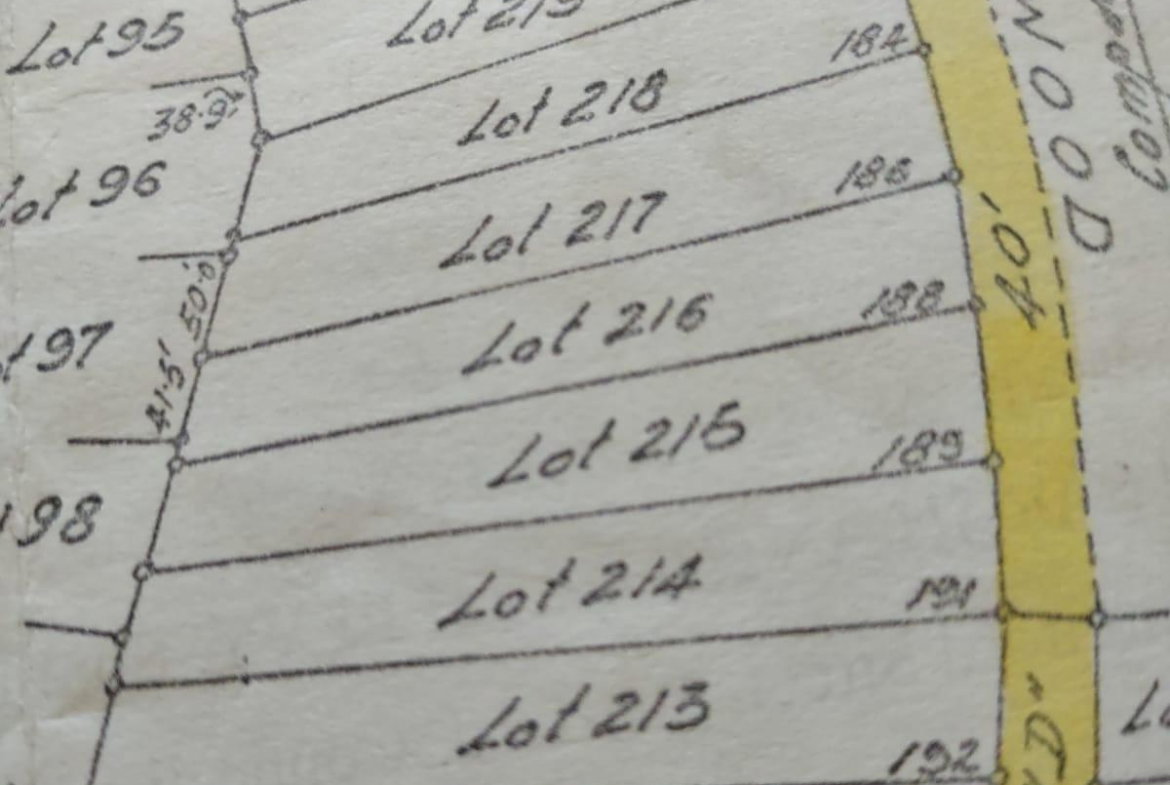 Lot 95
38.9'
Lot 96
50.0'
t 97
41.5'
98
Lot 219
184
Lot 218
186
Lot 217
188
Lot 216
189
Lot 215
191
Lot 214
192
Lot 213
40'
"D"